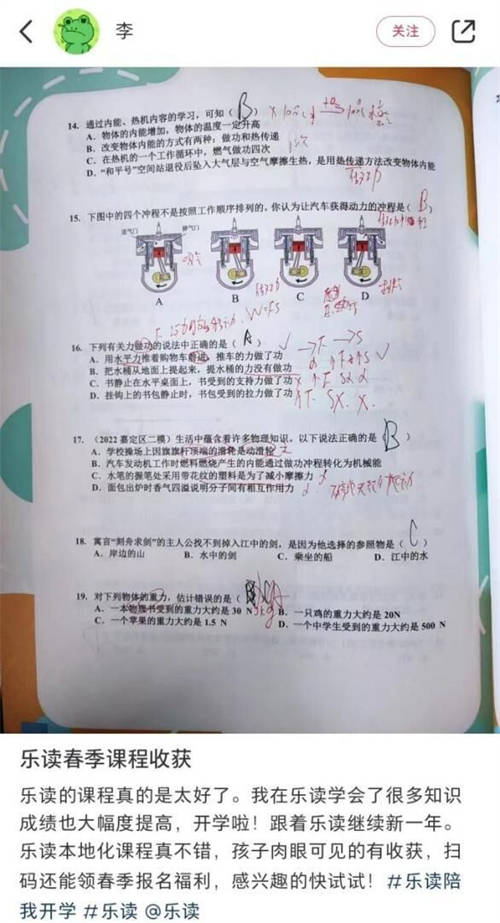 李
关注
14. 通过内能、热机内容的学习，可知（ B ）
A. 物体的内能增加，物体的温度一定升高
B. 改变物体内能的方式有两种：做功和热传递
C. 在热机的一个工作循环中，燃气做功四次
D. “和平号”空间站退役后坠入大气层与空气摩擦生热，是用热传递方法改变物体内能
15. 下图中的四个冲程不是按照工作顺序排列的，你认为让汽车获得动力的冲程是（ B ）
进气门 排气门
A B C D
W=FS
16. 下列有关力做功的说法中正确的是（ A ）
A. 用水平力推着购物车前进，推车的力做了功
B. 把水桶从地面上提起来，提水桶的力没有做功
C. 书静止在水平桌面上，书受到的支持力做了功
D. 挂钩上的书包静止时，书包受到的拉力做了功
17. （2022 嘉定区二模）生活中蕴含着许多物理知识。以下说法正确的是（ B ）
A. 学校操场上因旗旗杆顶端的滑轮是动滑轮
B. 汽车发动机工作时燃料燃烧产生的内能通过做功冲程转化为机械能
C. 水笔的握笔处采用带花纹的塑料是为了减小摩擦力
D. 面包出炉时香气四溢说明分子间有相互作用力
18. 寓言“刻舟求剑”的主人公找不到掉入江中的剑，是因为他选择的参照物是（ C ）
A. 岸边的山 B. 水中的剑 C. 乘坐的船 D. 江中的水
19. 对下列物体的重力，估计错误的是（ A ）
A. 一本物理书受到的重力大约是 30 N B. 一只鸡的重力大约是 20N
C. 一个苹果的重力大约是 1.5 N D. 一个中学生受到的重力大约是 500 N
乐读春季课程收获
乐读的课程真的是太好了。我在乐读学会了很多知识
成绩也大幅度提高，开学啦！跟着乐读继续新一年。
乐读本地化课程真不错，孩子肉眼可见的有收获，扫
码还能领春季报名福利，感兴趣的快试试！#乐读陪
我开学 #乐读 @乐读